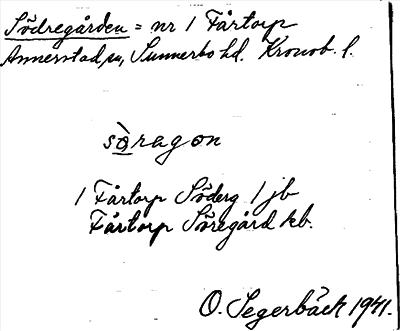 Södregården = nr 1 Fårtorp
Annerstad sn, Sunnerbo hd. Kronob. l.
sò̲ragon
1 Fårtorp Söderg 1 jb
Fårtorp Söregård kb.
O. Segerbäck 1941.